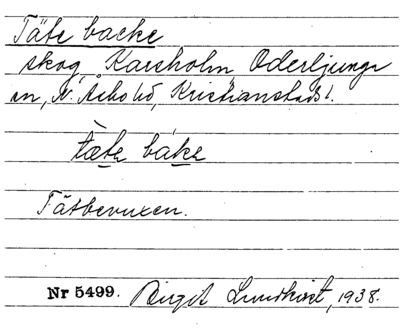 Täte backe
skog, Karsholm, Oderljunga
sn, N. Åsbo hd, Kristianstads l.
tæ̀te bákə
Tätbevuxen.
Nr 5499. Birgit Lundkvist, 1938.